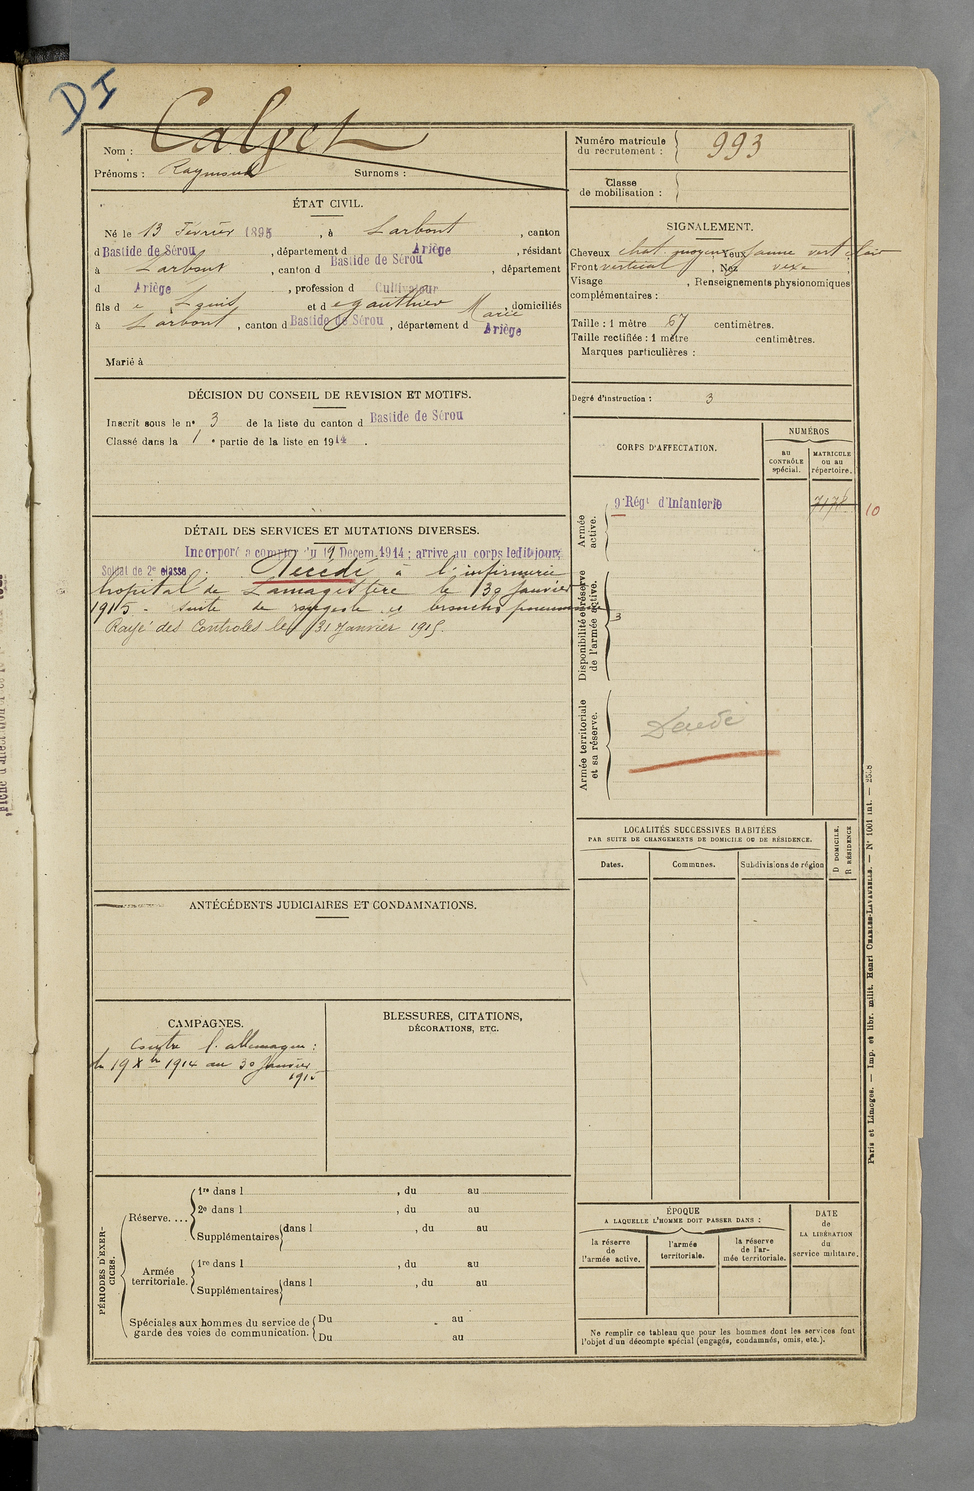 DI
Nom : Calvet
Prénoms : Raymond Surnoms :
Numéro matricule
du recrutement : 993
Classe
de mobilisation :
ÉTAT CIVIL.
Né le 13 Février 1895, à Larbont, canton
d Bastide de Sérou, département d Ariège, résidant
à Larbont, canton d Bastide de Sérou, département
d Ariège, profession d Cultivateur
fils de Louis et de gauthier Marie, domiciliés
à Larbont, canton d Bastide de Sérou, département d Ariège
Marié à
SIGNALEMENT.
Cheveux chat. moyen Yeux jaune vert clair
Front vertical, Nez vexe
Visage , Renseignements physionomiques
complémentaires :
Taille : 1 mètre 67 centimètres.
Taille rectifiée : 1 mètre centimètres.
Marques particulières :
Degré d'instruction : 3
DÉCISION DU CONSEIL DE REVISION ET MOTIFS.
Inscrit sous le n° 3 de la liste du canton d Bastide de Sérou
Classé dans la 1e partie de la liste en 1914.
CORPS D'AFFECTATION.
NUMÉROS
AU
CONTRÔLE
spécial.
MATRICULE
ou au
répertoire.
Armée
active.
9e Régt d'Infanterie
7178
10
Disponibilité et réserve
de l'armée active.
3
Armée territoriale
et sa réserve.
Décédé
DÉTAIL DES SERVICES ET MUTATIONS DIVERSES.
Incorporé à compter du 19 Decem. 1914 ; arrive au corps ledit jour
Soldat de 2e classe. Décédé à l'infirmerie
hopital de Lamagistère le 30 Janvier
1915 - suite de rougeole et broncho pneumonie
Rayé des Controles le 31 Janvier 1915.
LOCALITÉS SUCCESSIVES HABITÉES
PAR SUITE DE CHANGEMENTS DE DOMICILE OU DE RÉSIDENCE.
D DOMICILE.
R RÉSIDENCE
Dates.
Communes.
Subdivisions de région
ANTÉCÉDENTS JUDICIAIRES ET CONDAMNATIONS.
CAMPAGNES.
Contre l'allemagne :
du 19 Xbre 1914 au 30 Janvier
1915
BLESSURES, CITATIONS,
DÉCORATIONS, ETC.
PÉRIODES D'EXER-
CICES.
Réserve....
1re dans l , du au
2e dans l , du au
Supplémentaires dans l , du au
Armée
territoriale.
1re dans l , du au
Supplémentaires dans l , du au
Spéciales aux hommes du service de
garde des voies de communication.
Du au
Du au
ÉPOQUE
A LAQUELLE L'HOMME DOIT PASSER DANS :
la réserve
de
l'armée active.
l'armée
territoriale.
la réserve
de l'ar-
mée territoriale.
DATE
de
LA LIBÉRATION
du
service militaire.
Ne remplir ce tableau que pour les hommes dont les services font
l'objet d'un décompte spécial (engagés, condamnés, omis, etc.).
Paris et Limoges. — Imp. et libr. milit. Henri CHARLES-LAVAUZELLE. — N° 1001 int. — 2538